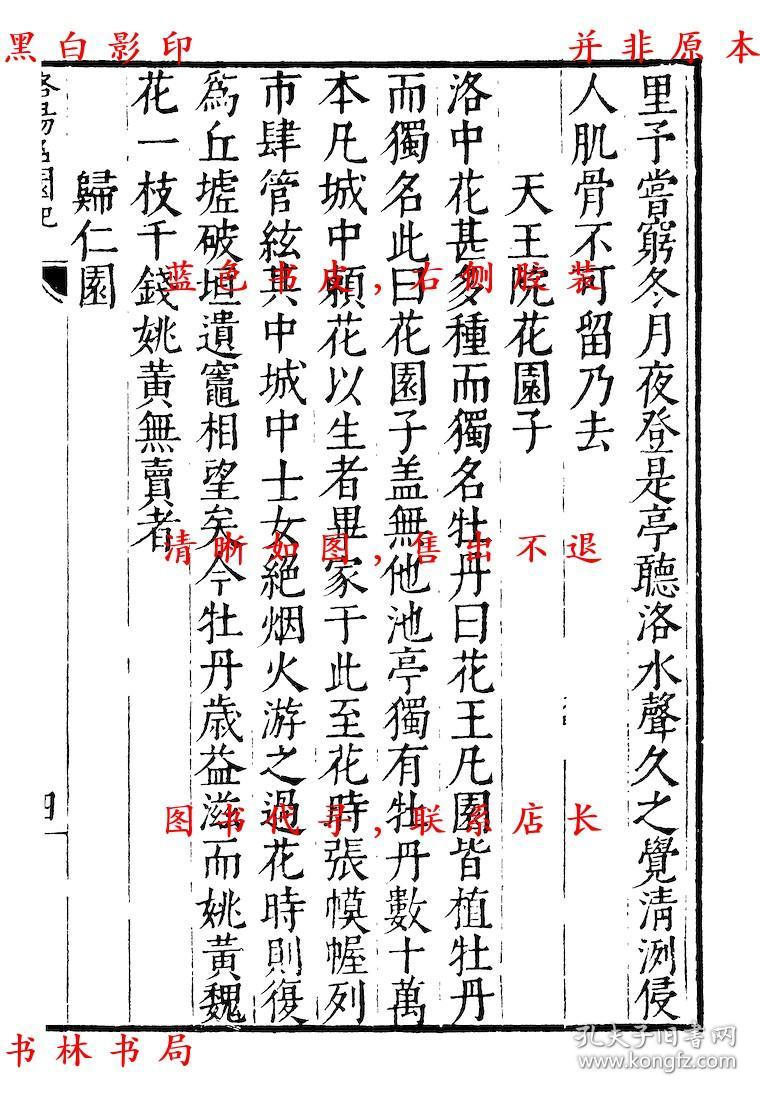 黑白影印
并非原本
里予嘗窮冬月夜登是亭聽洛水聲久之覺清洌侵
人肌骨不可留乃去
天王院花園子
洛中花甚多種而獨名牡丹曰花王凡園皆植牡丹
而獨名此曰花園子盖無他池亭獨有牡丹數十萬
本凡城中賴花以生者畢家于此至花時張幙幄列
市肆管絃其中城中士女絕烟火游之過花時則復
為丘墟破垣遺竈相望矣今牡丹歲益滋而姚黃魏
花一枝千錢姚黃無賣者
歸仁園
洛陽名園記
蓝色书皮,右侧胶装
清晰如图,售出不退
图书代寻,联系店长
书林书局
孔夫子旧书网
www.kongfz.com